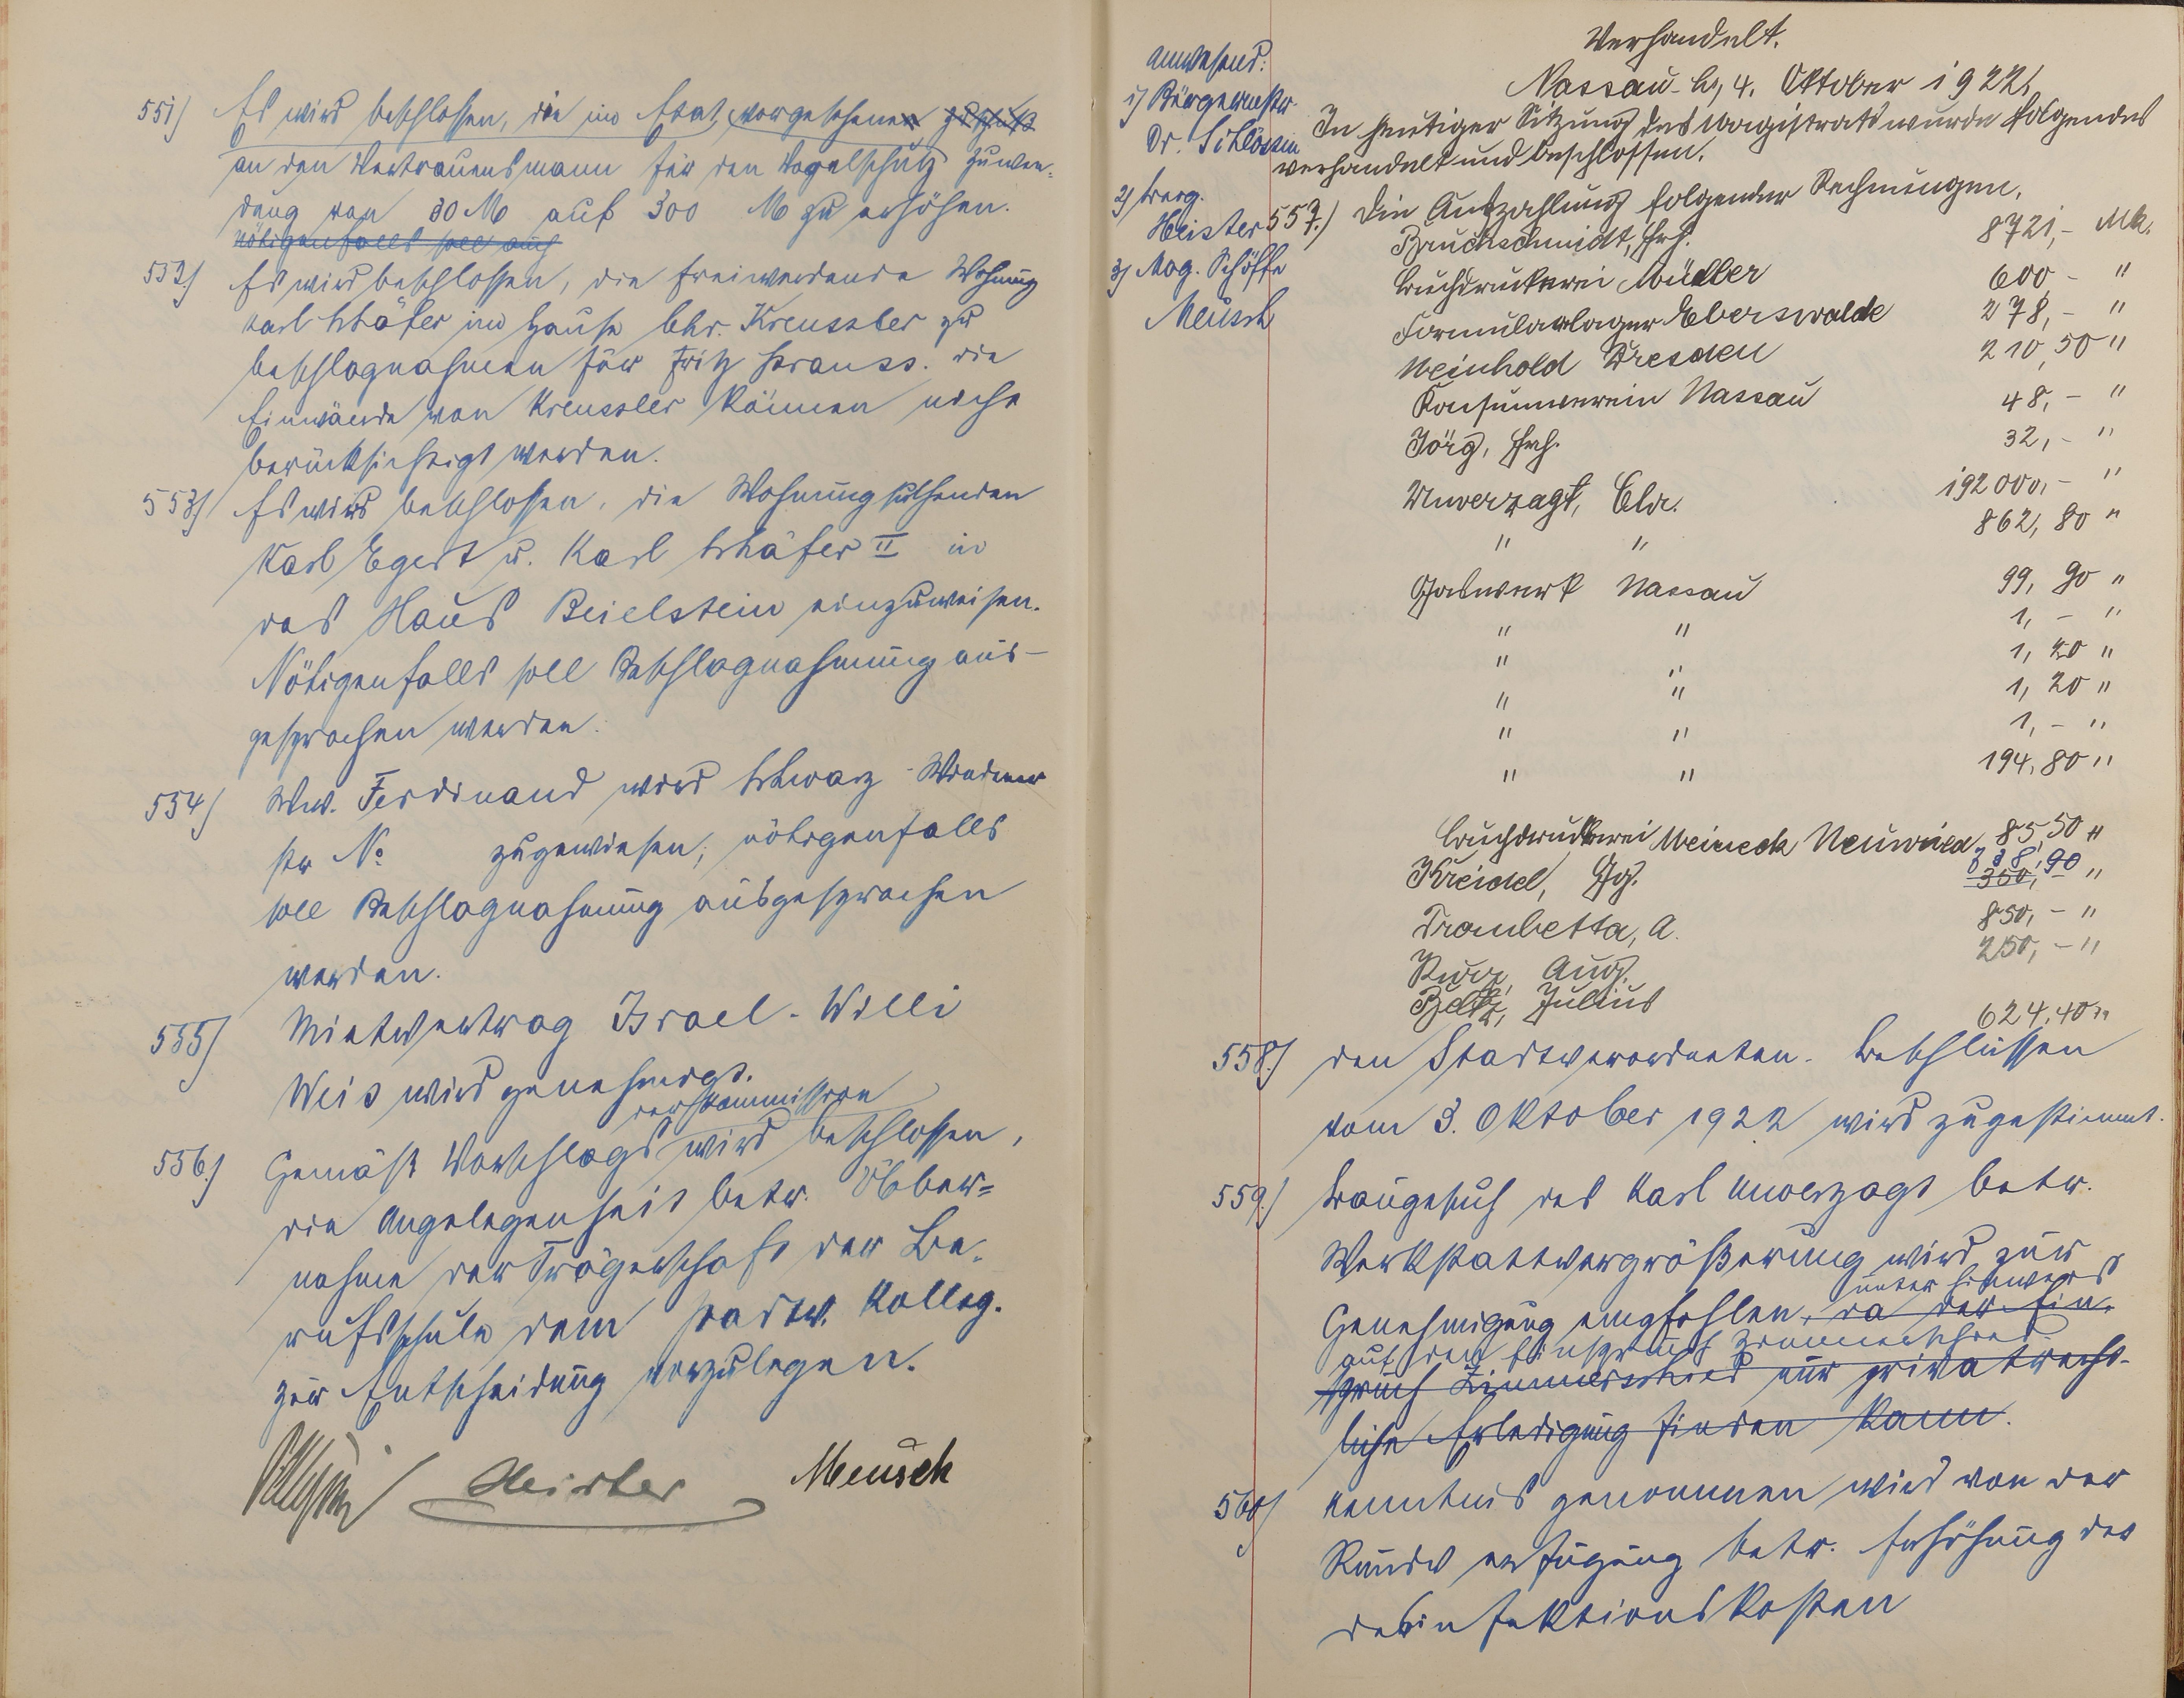 551) Es wird beschlossen, die im Etat vorgesehenen Zuschuß
an den Vertrauensmann für den Vogelschutz Zuwen-
dung von 30 M auf 300 M zu erhöhen.
nötigenfalls soll auch
552.) Es wird beschlossen, die freiwerdende Wohnung
Karl Schäfer im Hause Chr. Kreussler zu
beschlagnahmen für Fritz Strauss. Die
Einwände von Kreussler können nicht
berücksichtigt werden.
553) Es wird beschlossen, die Wohnungsuchenden
Karl Egert u. Karl Schäfer II in
das Haus Beielstein einzuweisen.
Nötigenfalls soll Beschlagnahmung aus-
gesprochen werden.
554) Ww. Ferdinand wird Schwarz
str No zugewiesen, nötigenfalls
soll Beschlagnahmung ausgesprochen
werden.
555) Mietvertrag Israel - Willi
Weis wird genehmigt.
der Kommission
556.) Gemäß Vorschlags wird beschlossen,
die Angelegenheit betr. Über-
nahme der Trägerschaft der Be-
rufsschule dem Stadtv. Kolleg.
zur Entscheidung vorzulegen.
Heister Meusch
Verhandelt.
Nassau, den 4. Oktober 1922.
Anwesend:
1) Bürgermstr.
Dr. Schlössin
2) Beig.
Heister
3) Mag. Schöffe
Meusch
In heutiger Sitzung des Magistrats wurde folgendes
verhandelt und beschlossen.
557.) Die Auszahlung folgender Rechnungen.
Bruchschmidt, Hrch. 8721,- Mk.
Buchdruckerei Müller 600,- "
Formularlager Eberswalde 278,- "
Weinhold Dresden 210,50 "
Konsumverein Nassau 48,- "
Jörg, Hrch. 32,- "
Unverzagt, Chr. 192000,- "
" " 862,80 "
Gaswerk Nassau 99,90 "
" " 1,- "
" " 1,20 "
" " 1,20 "
" " 1,- "
" " 194,80 "
Buchdruckerei Meineck Neuwied 85,50 "
Kreidel, Gg. 350, 90 "
Trombetta, A. 850,- "
Kurz, Aug. 250,- "
Beltz, Julius 624,40 "
558.) Den Stadtverordneten-Beschlüssen
vom 3. Oktober 1922 wird zugestimmt.
559.) Baugesuch des Karl Unverzagt betr.
Werkstattvergrößerung wird zur
unter Hinweis
Genehmigung empfohlen, da der Ein-
auf den Einspruch Zimmerschied
spruch Zimmerschied nur privatrecht-
liche Erledigung finden kann.
560) Kenntnis genommen wird von der
Rundverfügung betr. Erhöhung der
Desinfektionskosten